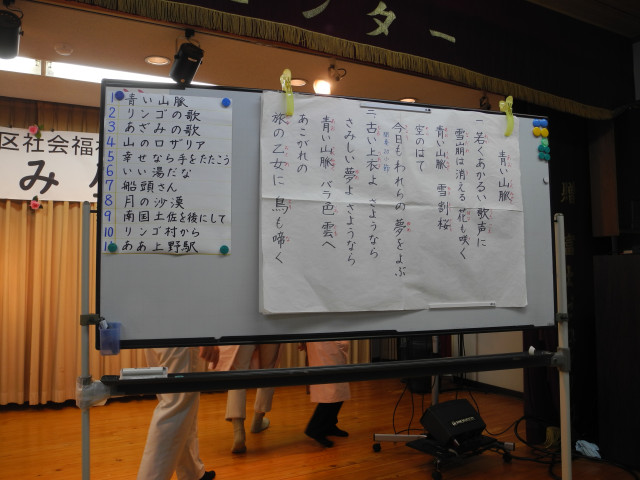 ンター
区社会福
み
1 青い山脈
2 リンゴの歌
3 あざみの歌
4 山のロザリア
5 幸せなら手をたたこう
6 いい湯だな
7 船頭さん
8 月の沙漠
9 南国土佐を後にして
10 リンゴ村から
ああ上野駅
青い山脈
一 若くあかるい歌声に
雪崩は消える花も咲く
青い山脈 雪割桜
空のはて
今日もわれらの夢をよぶ
二 古い上衣よ さようなら
さみしい夢よ さようなら
青い山脈 バラ色雲へ
あこがれの
旅の乙女に 鳥も啼く